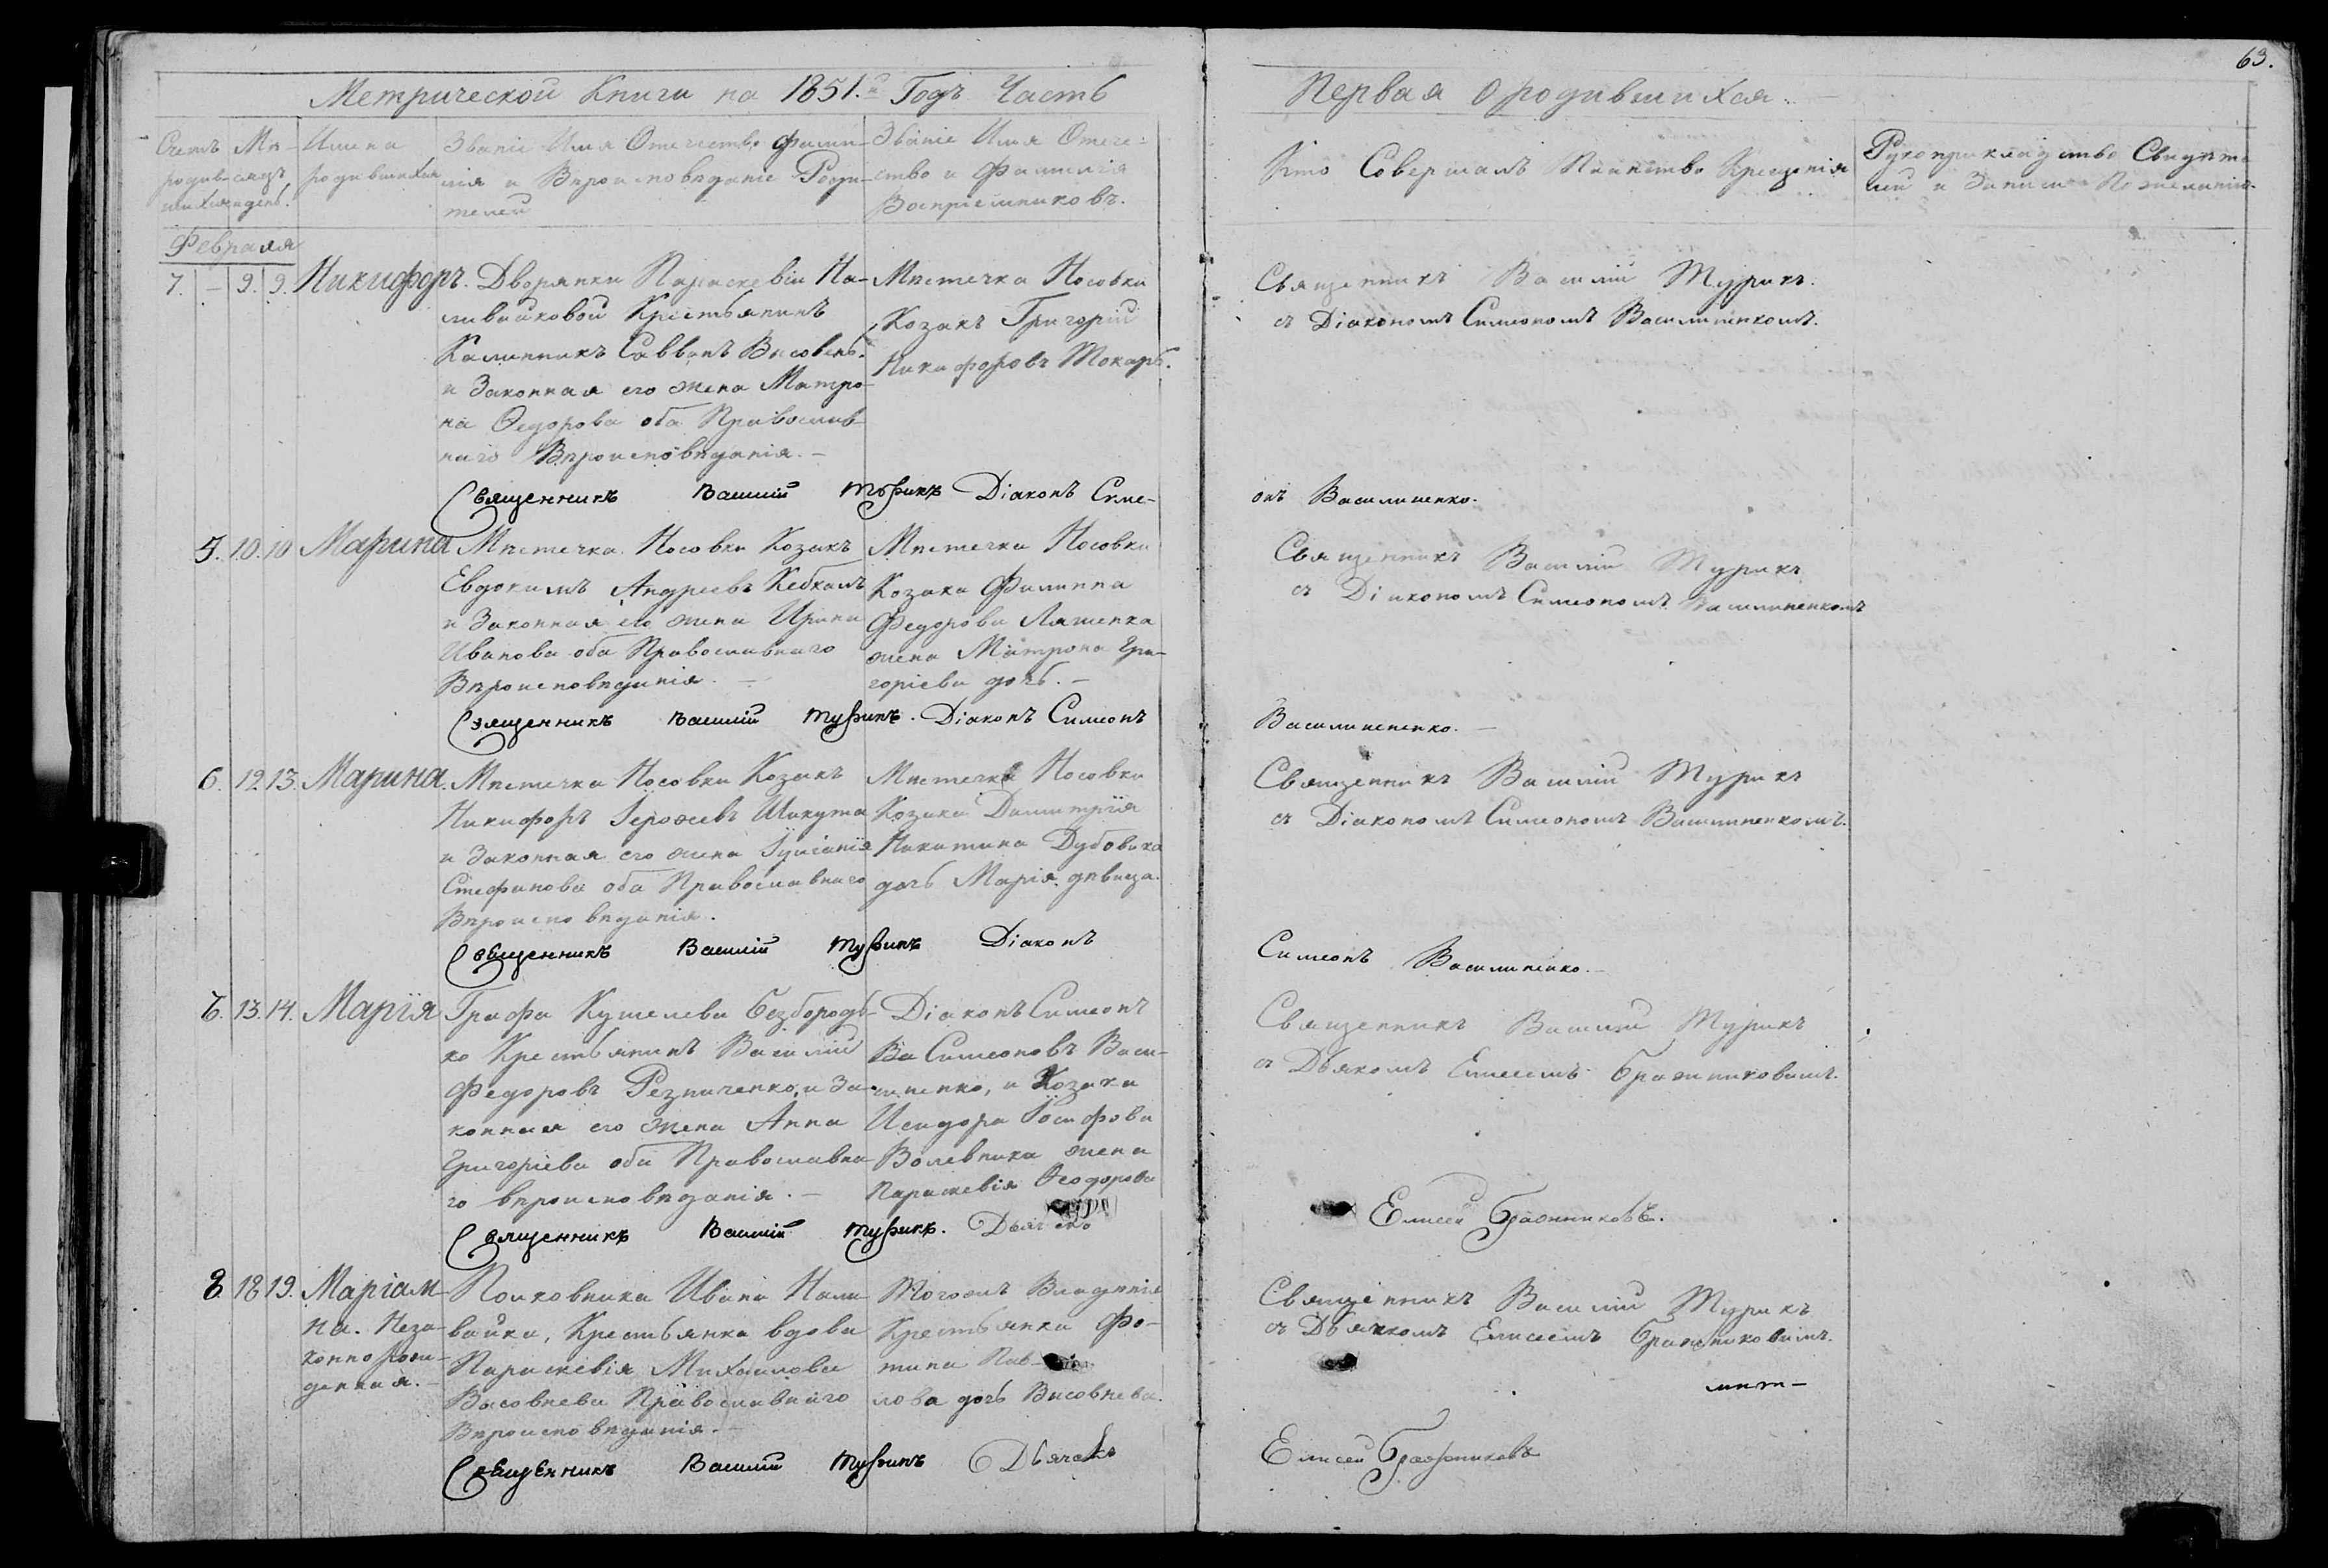 63.
Метрической Книги на 1851.й Годъ Часть
Первая О родившихся.
Счетъ родив-шихся
Мѣ-сяцъ, и день.
Имена родившихся
Званіе Имя Отечество фами-
лія и Вѣроисповѣданіе Роди-
телей
Званіе Имя Отече-
ство и Фамилія
Воспріемниковъ.
Кто Совершалъ Таинство Крещенія
Рукоприкладство Свидѣте
лей и Записи По желанію.
Февраля
7. – 9. 9. Никифоръ.
Дворянки Параскевіи На-
ливайковой Крестьянинъ
Калинникъ Саввинъ Высовень.
и Законная его жена Матро-
на Ѳедорова оба Православ
наго Вѣроисповѣданія. –
Мѣстечка Носовки
Козакъ Григорій
Никифоровъ Токарь.
Священникъ Василій Турикъ.
съ Діакономъ Симеономъ Василиненкомъ.
Священникъ Василій Турикъ Діаконъ Симе-
онъ Василиненко.
5. 10. 10 Марина
Мѣстечка Носовки Козакъ
Евдокимъ Андреевъ Кебкалъ
и Законная его жена Ирина
Иванова оба Православнаго
Вѣроисповѣданія. –
Мѣстечка Носовки
Козака Филиппа
Федорова Ляшенка
жена Матрона Гри-
горіева дочь. –
Священникъ Василій Турикъ
съ Діакономъ Симеономъ Василиненкомъ
Священникъ Василій Турикъ. Діаконъ Симеонъ
Василиненко. –
6. 12. 13. Марина.
Мѣстечка Носовки Козакъ
Никифоръ Шикута
и Законная его жена Іуліанія
Стефанова оба Православнаго
Вѣроисповѣданія.
Мѣстечка Носовки
Козака Димитрія
Никитина Дубовика
дочь Марія дѣвица.
Священникъ Василій Турикъ
съ Діакономъ Симеономъ Василиненкомъ.
Священникъ Василій Турикъ Діаконъ
Симеонъ Василиненко. –
7. 13. 14. Марія
Графа Кушелева Безбородь-
ко Крестьянинъ Василій
Федоровъ Резниченко, и За-
конная его жена Анна
Григоріева оба Православна-
го вѣроисповѣданія. –
Діаконъ Симеонъ
Ва Симеоновъ Васи-
линенко, и Козака
Исидора Іосифова
Волевника жена
Параскевія Ѳеодорова
Священникъ Василій Турикъ
съ Дьякомъ Елисеемъ Бражниковымъ.
Священникъ Василій Турикъ.
Елисей Бражниковъ.
8. 18 19. Маріам-
на. Неза-
коннорож-
денная. –
Полковника Ивана Нали-
вайка, Крестьянка вдова
Параскевія Михаилова
Высовнева Православнаго
Вѣроисповѣданія. –
Того жъ Владѣнія
Крестьянка Фо-
тина Пав-
лова дочь Высовнева.
Священникъ Василій Турикъ
съ Дьячкомъ Елисеемъ Бражниковымъ.
Священникъ Василій Турикъ Дьячекъ
Елисей Бражниковъ